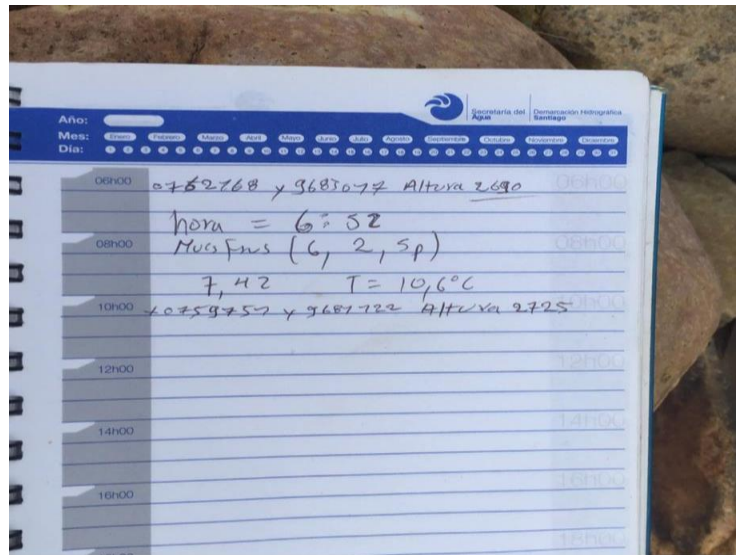 Secretaría del Agua
Demarcación Hidrográfica Santiago
Año:
Mes: Enero Febrero Marzo Abril Mayo Junio Julio Agosto Septiembre Octubre Noviembre Diciembre
Día:
06h00
0762768 y 9683077 Altura 2690
hora = 6:52
08h00
Muestras (6, 2, Sp)
7,42 T = 10,6°C
10h00
x0759757 y 9681722 Altura 2725
12h00
14h00
16h00